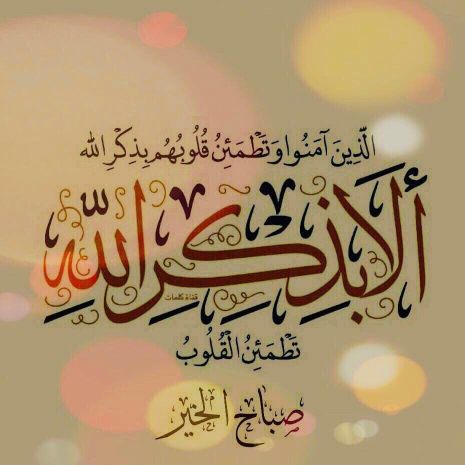 الَّذِينَ آمَنُوا وَتَطْمَئِنُّ قُلُوبُهُم بِذِكْرِ الله
ألَا بِذِكْرِ اللَّهِ
قناة كلمات
تَطْمَئِنُ الْقُلُوبُ
صباح الخير